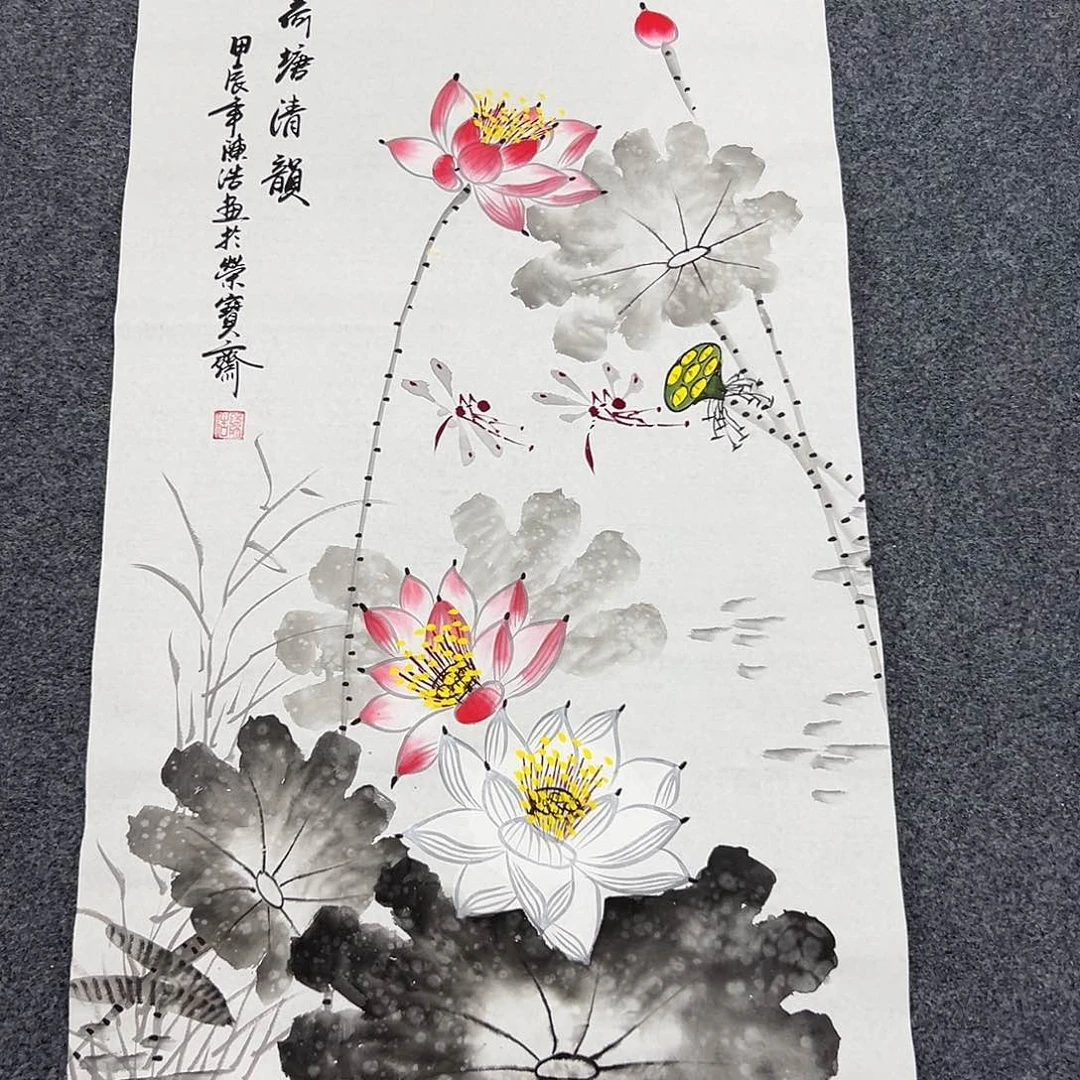 荷塘清韻
甲辰年陳浩畫於榮寶齋